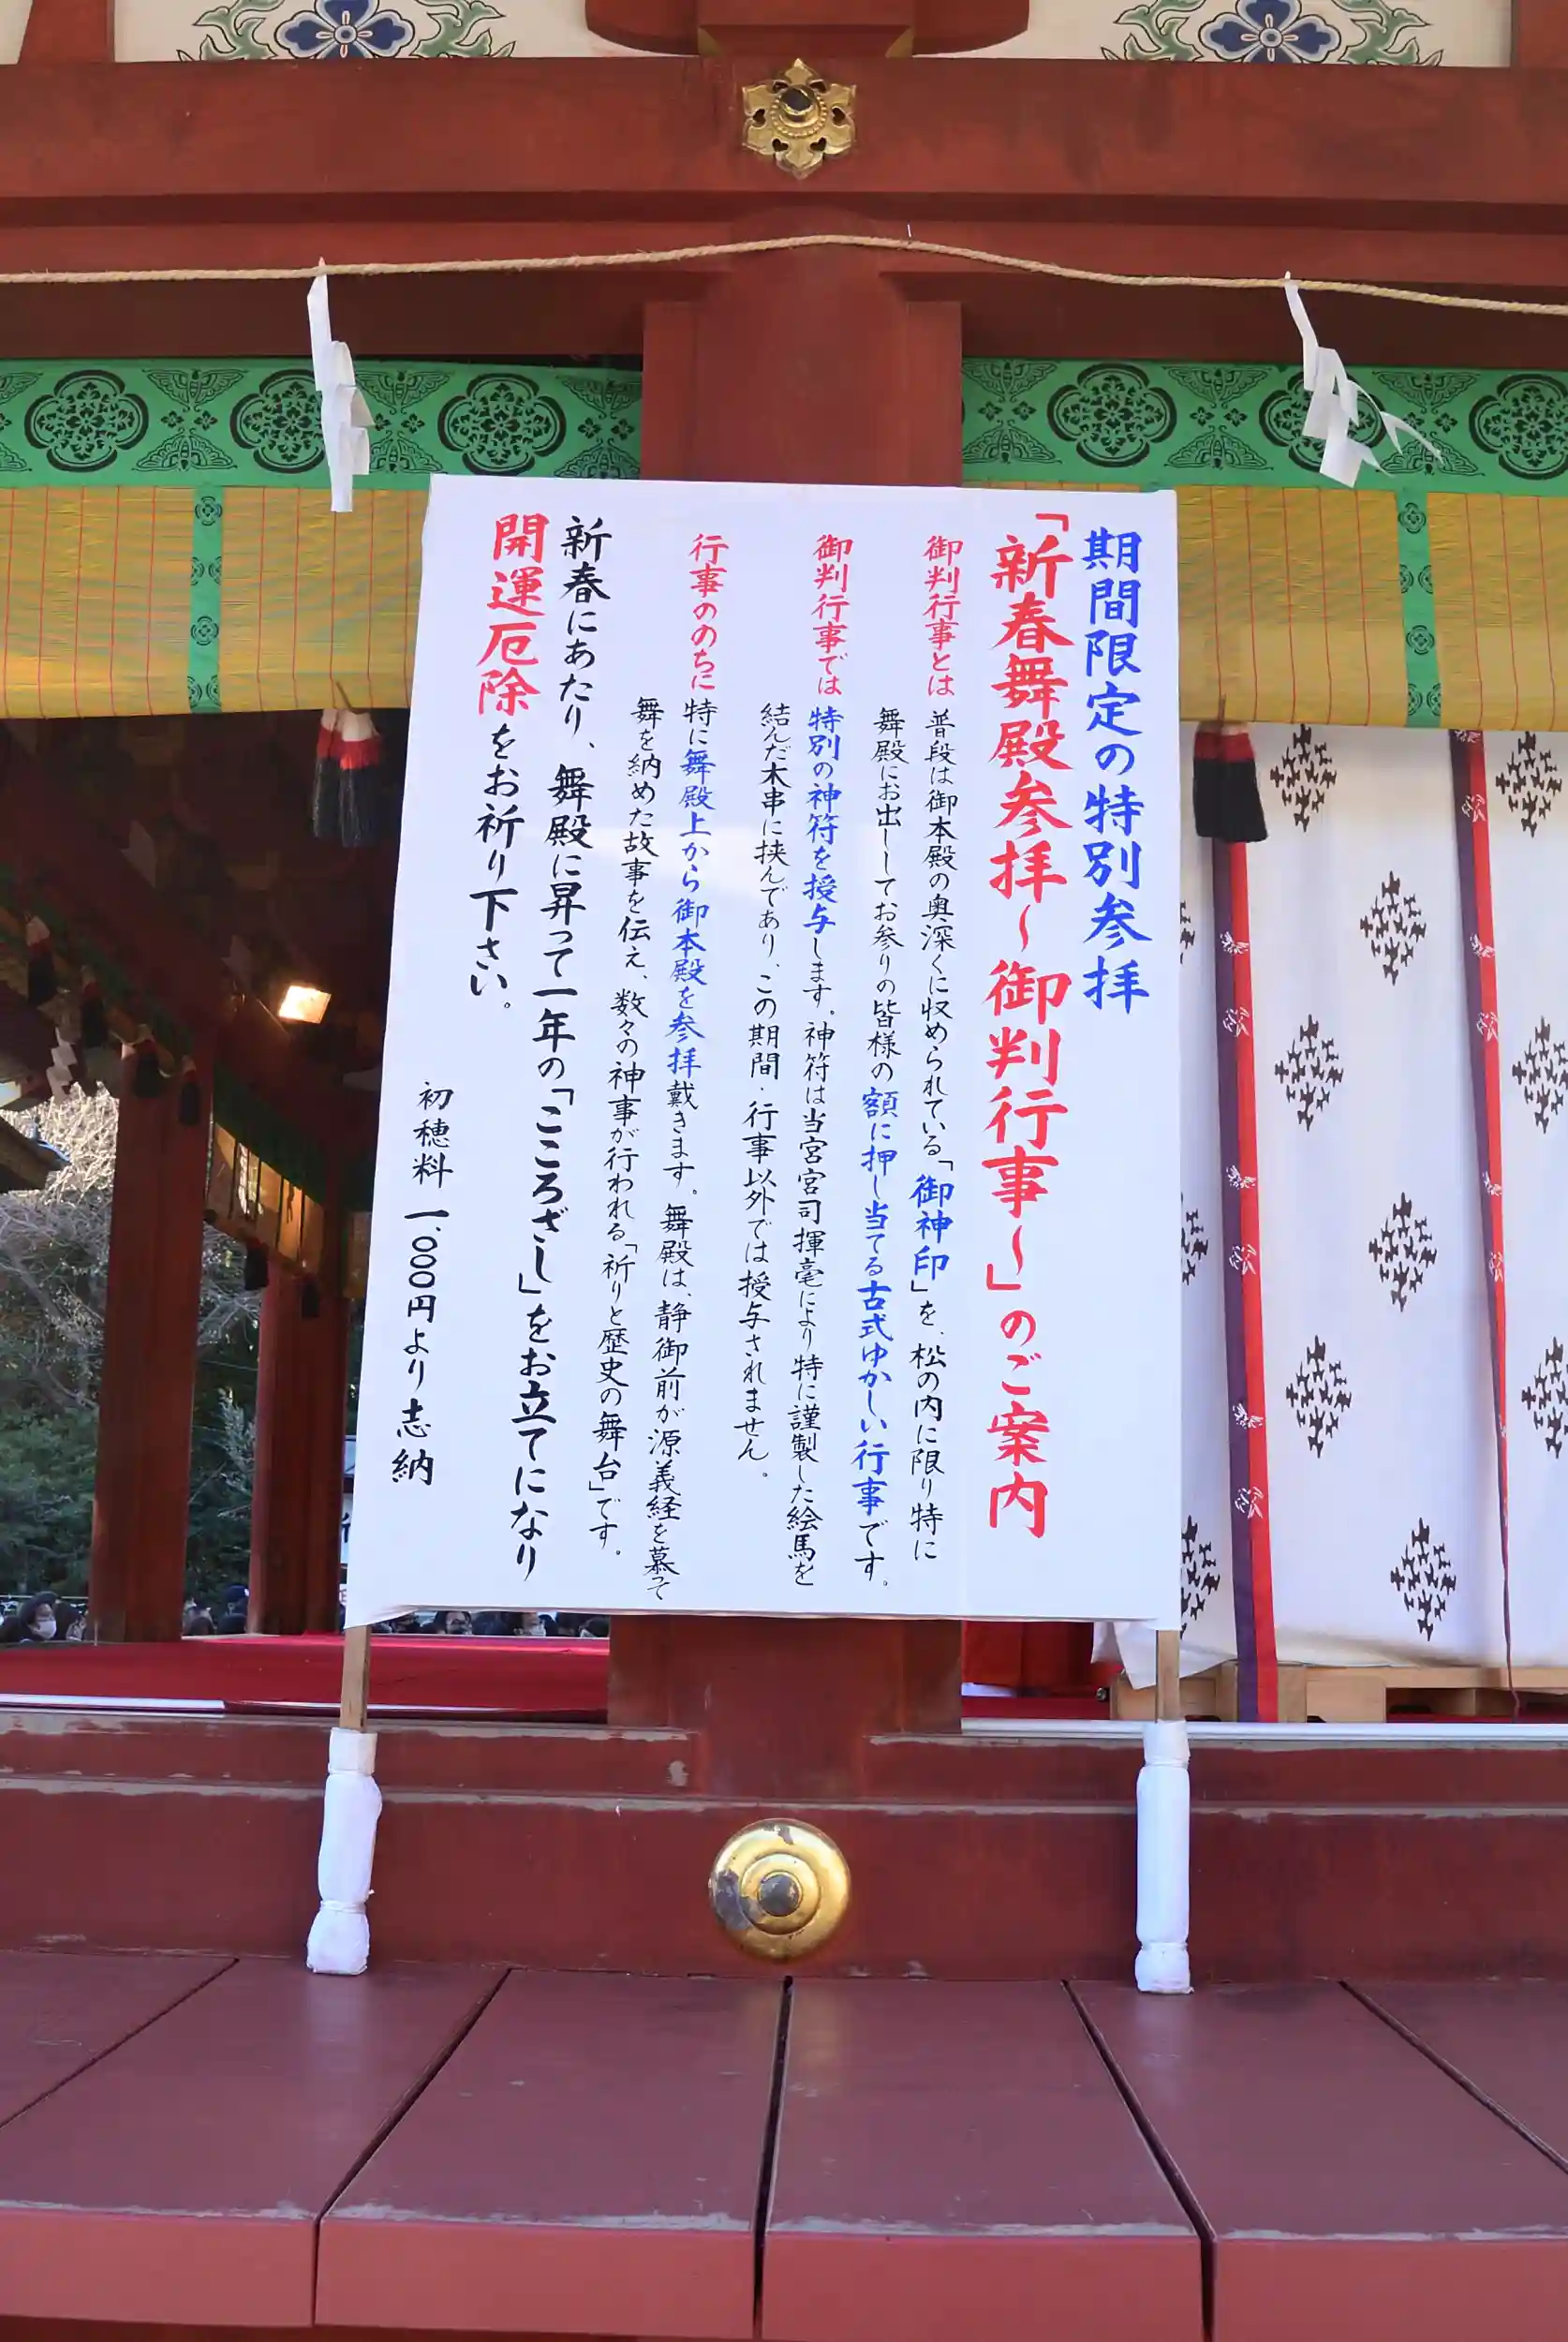 期間限定の特別参拝
「新春舞殿参拝～御判行事～」のご案内
御判行事とは 普段は御本殿の奥深くに収められている「御神印」を、松の内に限り特に
舞殿にお出ししてお参りの皆様の額に押し当てる古式ゆかしい行事です。
御判行事では 特別の神符を授与します。神符は当宮宮司揮毫により特に謹製した絵馬を
結んだ木串に挟んであり、この期間・行事以外では授与されません。
行事ののちに 特に舞殿上から御本殿を参拝戴きます。舞殿は、静御前が源義経を慕って
舞を納めた故事を伝え、数々の神事が行われる「祈りと歴史の舞台」です。
新春にあたり、舞殿に昇って一年の「こころざし」をお立てになり
開運厄除をお祈り下さい。
初穂料 一、〇〇〇円より志納